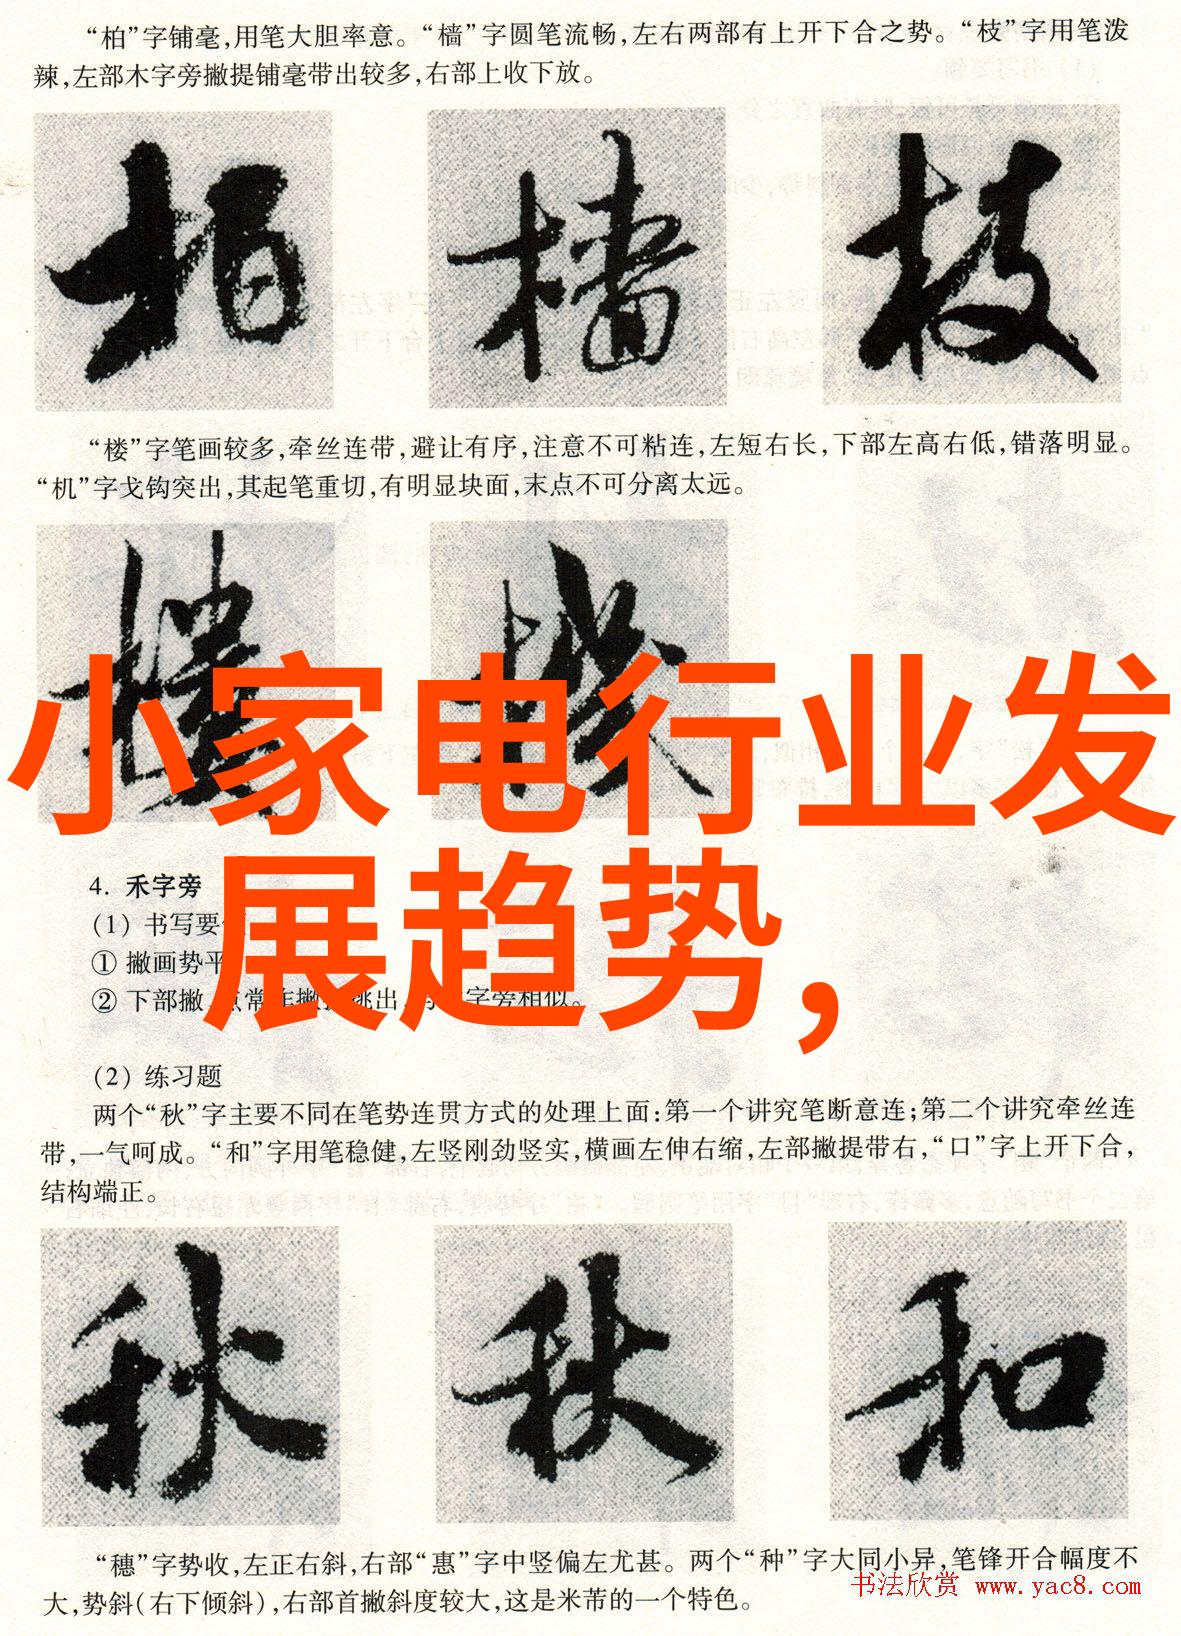 “柏”字铺毫,用笔大胆率意。“樯”字圆笔流畅,左右两部有上开下合之势。“枝”字用笔泼
辣,左部木字旁撇提铺毫带出较多,右部上收下放。
柏 樯 枝
“楼”字笔画较多,牵丝连带,避让有序,注意不可粘连,左短右长,下部左高右低,错落明显。
“机”字戈钩突出,其起笔重切,有明显块面,末点不可分离太远。
樓 機
小家电行业发
展趋势，
4. 禾字旁
(1) 书写要
① 撇画势平
② 下部撇 挑出 字旁相似。
(2) 练习题
两个“秋”字主要不同在笔势连贯方式的处理上面:第一个讲究笔断意连;第二个讲究牵丝连
带,一气呵成。“和”字用笔稳健,左竖刚劲竖实,横画左伸右缩,左部撇提带右,“口”字上开下合,
结构端正。
秋 秋 和
“穗”字势收,左正右斜,右部“惠”字中竖偏左尤甚。两个“种”字大同小异,笔锋开合幅度不
大,势斜(右下倾斜),右部首撇斜度较大,这是米芾的一个特色。
书法欣赏 www.yac8.com